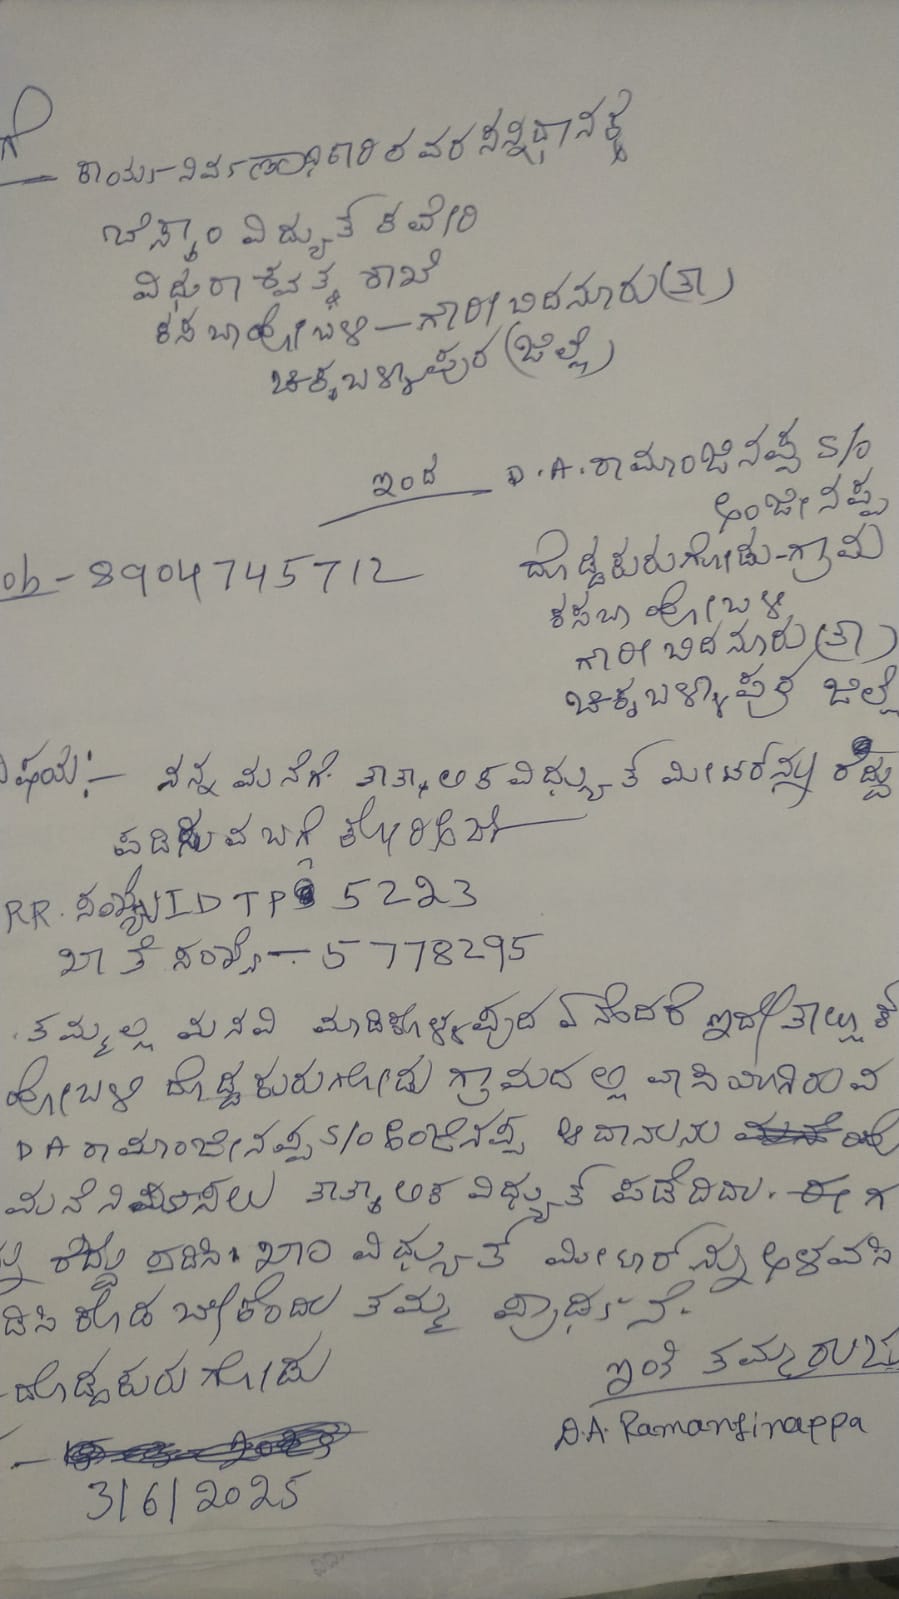 ಗೆ
ಕಾರ್ಯನಿರ್ವಹಣಾಧಿಕಾರಿರವರ ಸನ್ನಿಧಾನಕ್ಕೆ
ಬೆಸ್ಕಾಂ ವಿದ್ಯುತ್ ಕಛೇರಿ
ವಿಧುರಾಶ್ವತ್ಥ ಶಾಖೆ
ಕಸಬಾ ಹೋಬಳಿ - ಗೌರೀಬಿದನೂರು (ತಾ)
ಚಿಕ್ಕಬಳ್ಳಾಪುರ (ಜಿಲ್ಲೆ)
ಇಂದ D.A. ರಾಮಾಂಜಿನಪ್ಪ S/o
ಅಂಜೀನಪ್ಪ
ob - 8904745712 ದೊಡ್ಡಕುರುಗೋಡು - ಗ್ರಾಮ
ಕಸಬಾ ಹೋಬಳಿ
ಗೌರೀಬಿದನೂರು (ತಾ)
ಚಿಕ್ಕಬಳ್ಳಾಪುರ ಜಿಲ್ಲೆ
ವಿಷಯ:- ನನ್ನ ಮನೆಗೆ ತಾತ್ಕಾಲಿಕ ವಿಧ್ಯುತ್ ಮೀಟರ್‌ನ್ನು ರದ್ದು
ಪಡಿಸುವ ಬಗ್ಗೆ ಕೋರಿಕೆ
RR. ಸಂಖ್ಯೆ IDTP 5223
ಖಾತೆ ಸಂಖ್ಯೆ - 5778295
ತಮ್ಮಲ್ಲಿ ಮನವಿ ಮಾಡಿಕೊಳ್ಳುವುದ ಏನೆಂದರೆ ಇದೇ ತಾಲ್ಲೂಕ್
ಹೋಬಳಿ ದೊಡ್ಡಕುರುಗೋಡು ಗ್ರಾಮದಲ್ಲಿ ವಾಸಿಯಾಗಿರುವ
DA ರಾಮಾಂಜೀನಪ್ಪ S/o ಅಂಜಿನಪ್ಪ ಆದ ನಾನು
ಮನೆ ತಾತ್ಕಾಲಿಕ ವಿಧ್ಯುತ್ ಪಡೆದಿದು. ಈಗ
ರದ್ದು ಪಡಿಸಿ ಖಾಯಂ ವಿಧ್ಯುತ್ ಮೀಟರ್‌ನ್ನು ಅಳವಡಿಸಿ
ಕೊಡಬೇಕೆಂದು ತಮ್ಮ ಪ್ರಾರ್ಥನೆ.
ದೊಡ್ಡಕುರುಗೋಡು ಇಂತಿ ತಮ್ಮ
D.A. Ramanjinappa
3/6/2025